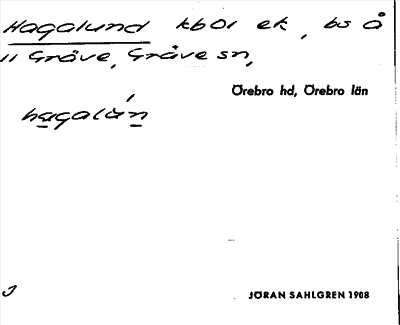 Hagalund kb01 ek, bs å
11 Gräve, Gräve sn,
Örebro hd, Örebro län
hagalún
JÖRAN SAHLGREN 1908